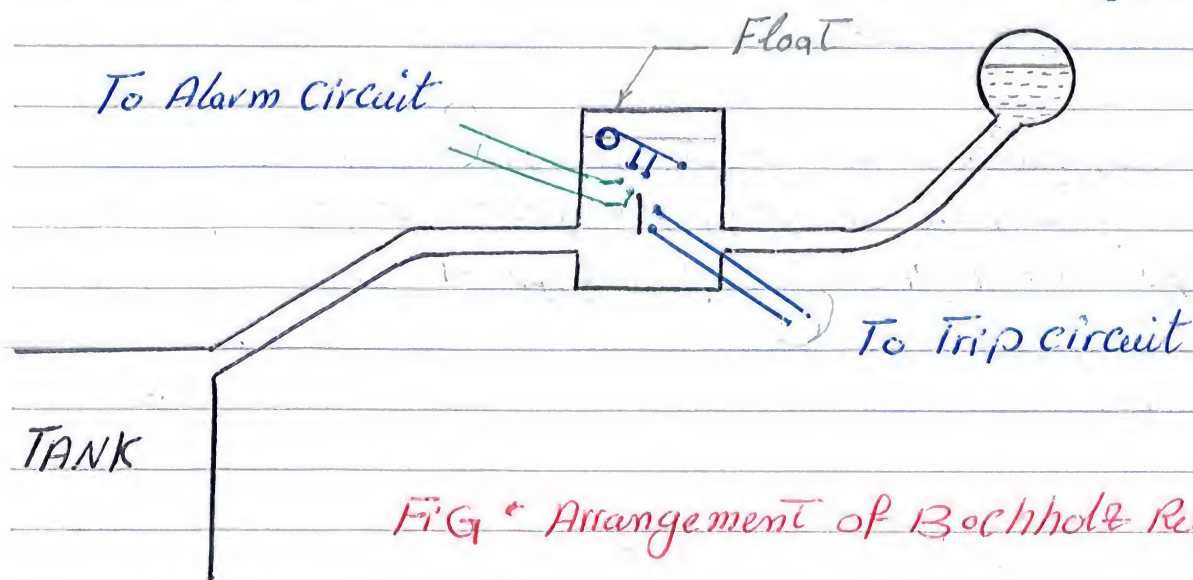 Float
To Alarm Circuit
To Trip circuit
TANK
FiG • Arrangement of Bochholz